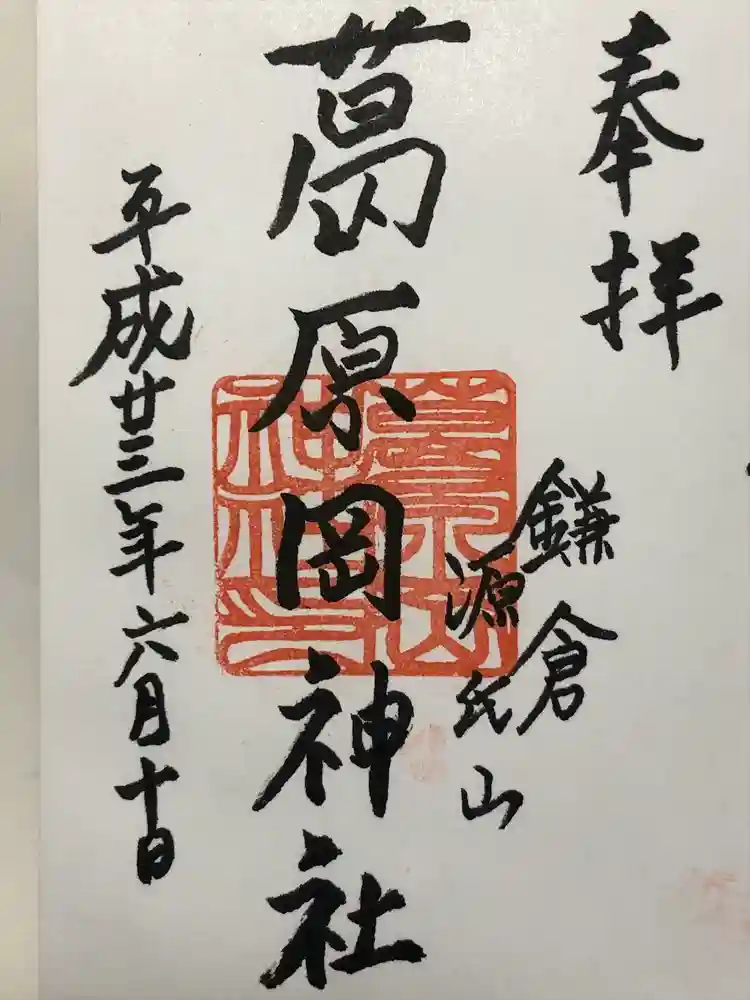 奉拝
鎌倉
源氏山
葛原岡神社
平成廿三年六月十日